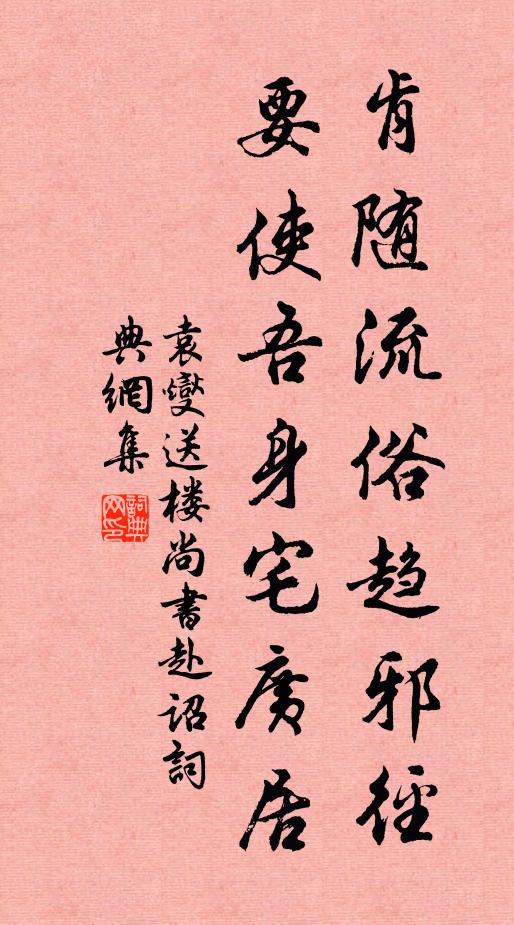 肯随流俗趋邪径
要使吾身宅廣居
袁燮送楼尚書赴诏詞
典網集
詞典網印